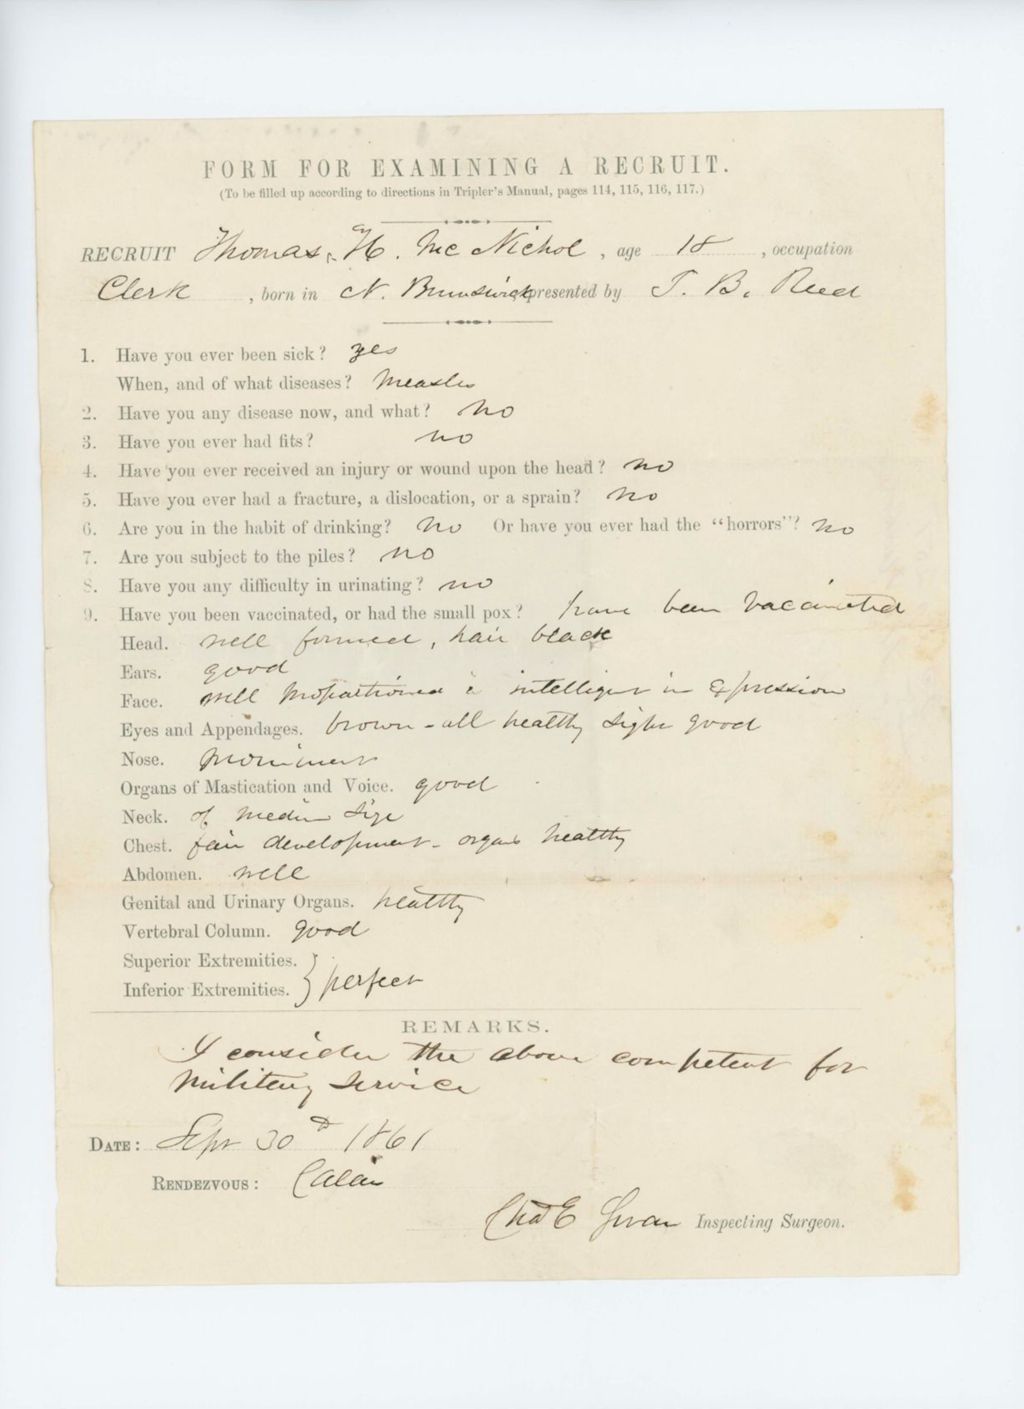 FORM FOR EXAMINING A RECRUIT.
(To be filled up according to directions in Tripler's Manual, pages 114, 115, 116, 117.)
RECRUIT Thomas H. McNichol, age 18, occupation
Clerk, born in N. Brunswick presented by T. B. Reed
1. Have you ever been sick? yes
When, and of what diseases? Measles
2. Have you any disease now, and what? No
3. Have you ever had fits? no
4. Have you ever received an injury or wound upon the head? no
5. Have you ever had a fracture, a dislocation, or a sprain? No
6. Are you in the habit of drinking? No Or have you ever had the "horrors"? No
7. Are you subject to the piles? no
8. Have you any difficulty in urinating? no
9. Have you been vaccinated, or had the small pox? have been Vaccinated
Head. well formed, hair black
Ears. good
Face. well proportioned & intelligent in Expression
Eyes and Appendages. brown - all healthy Sight good
Nose. prominent
Organs of Mastication and Voice. good
Neck. of medium Size
Chest. fair development - organs healthy
Abdomen. well
Genital and Urinary Organs. healthy
Vertebral Column. good
Superior Extremities.
Inferior Extremities. } perfect
REMARKS.
I consider the above competent for
Military Service
DATE: Sept 30th 1861
RENDEZVOUS: Calais
Chas E Swan Inspecting Surgeon.